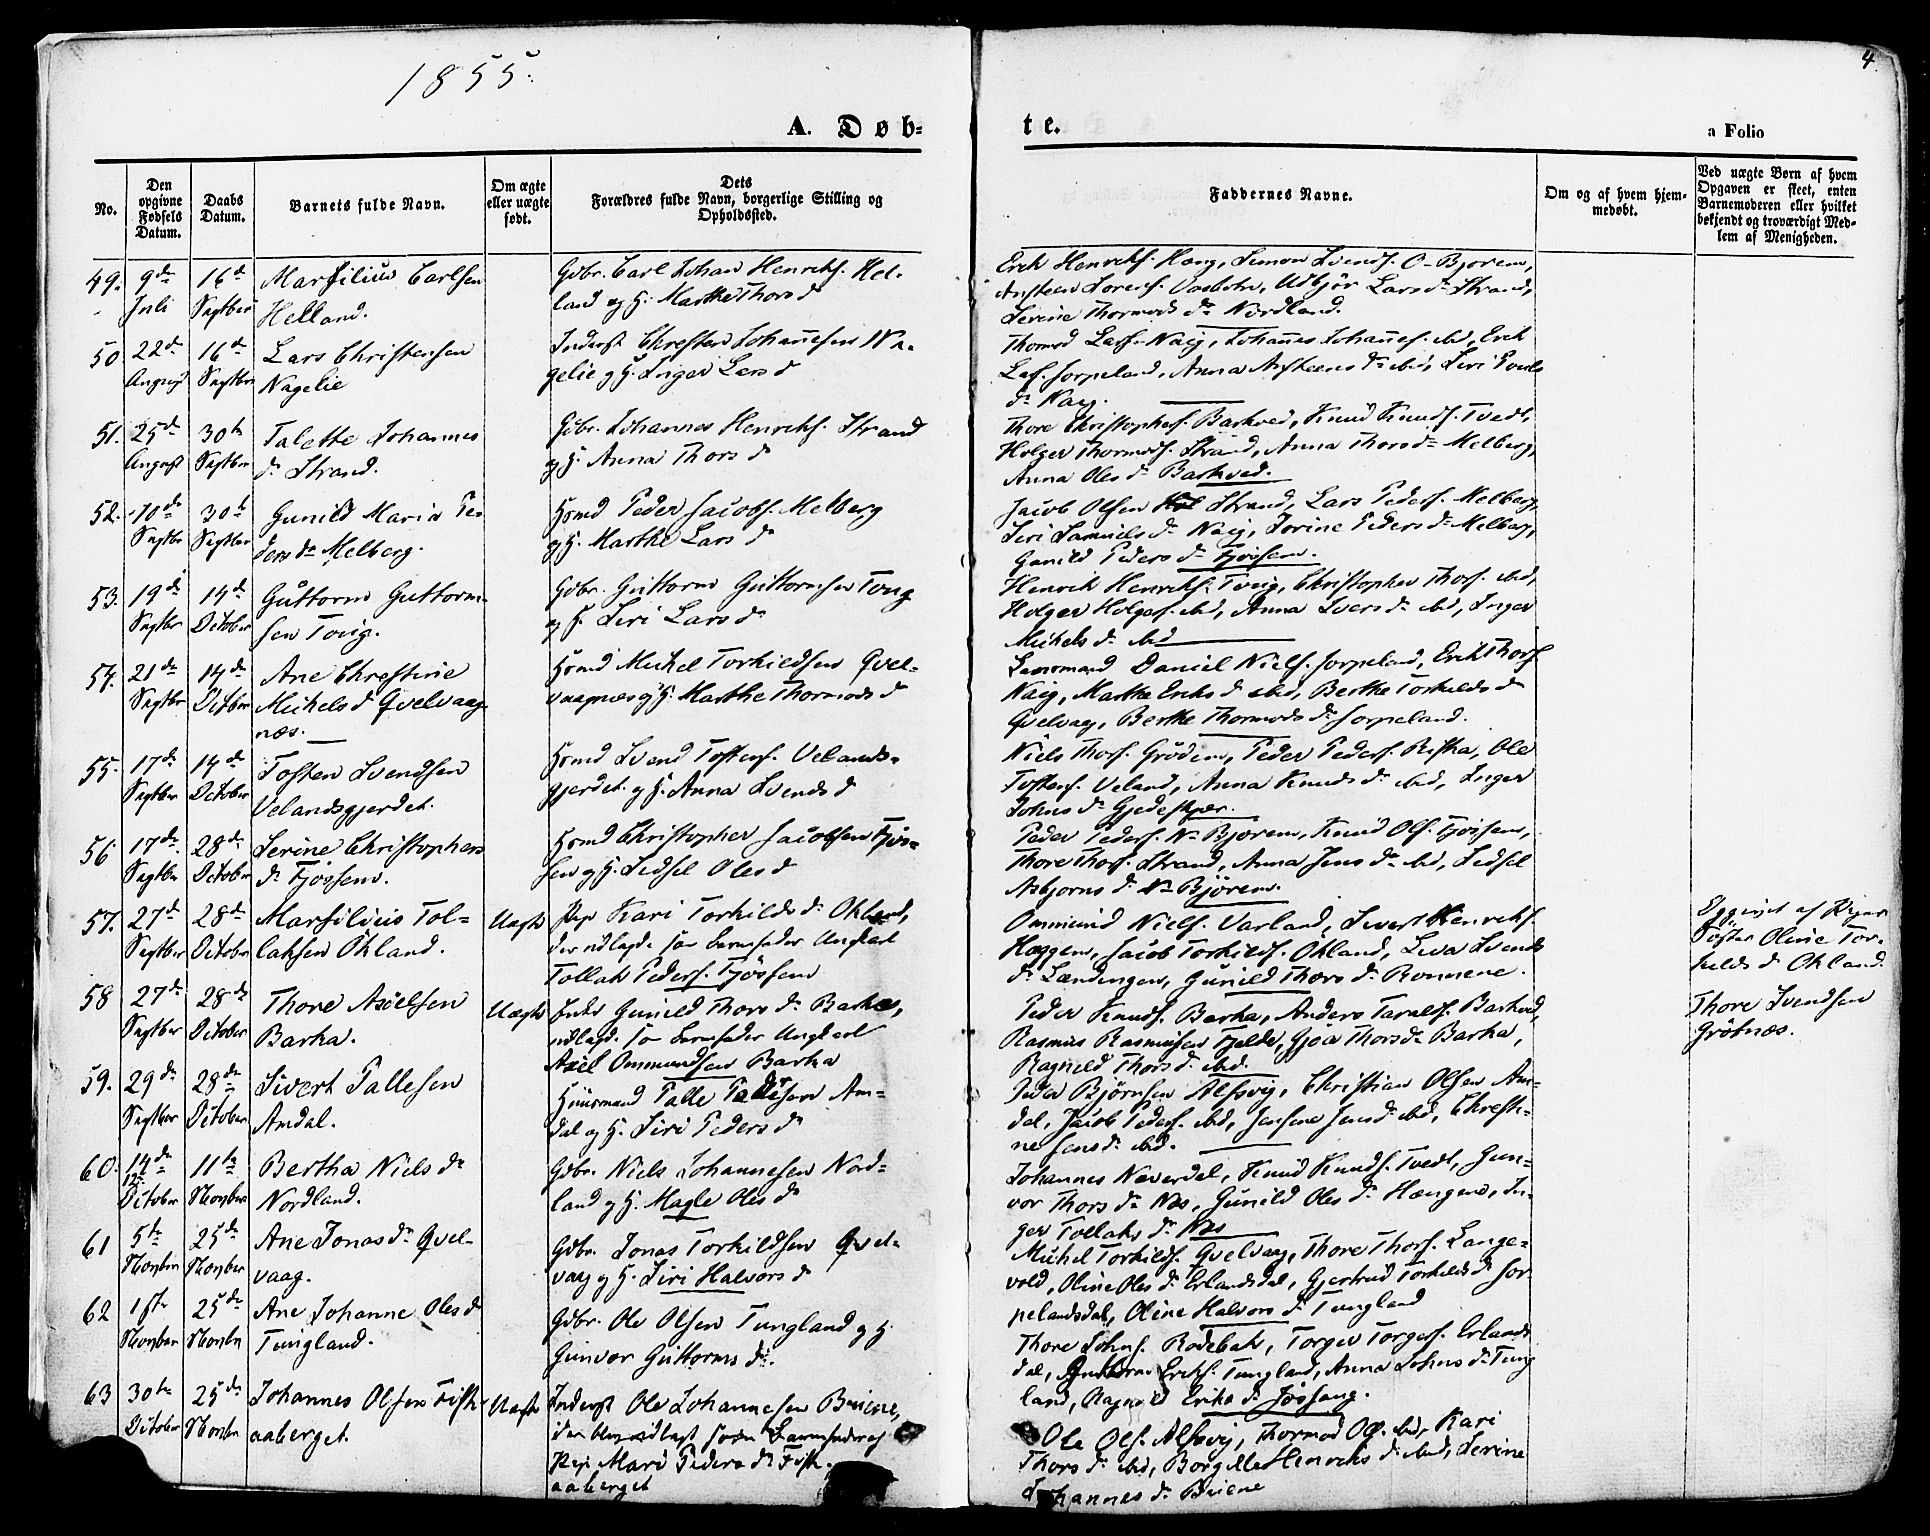 1855.
A. Døb-
te.
4.
a Folio
No.
Den
opgivne
Fødsels
Datum.
Daabs
Datum.
Barnets fulde Navn.
Om ægte
eller uægte
født.
Dets
Forældres fulde Navn, borgerlige Stilling og
Opholdssted.
Faddernes Navne.
Om og af hvem hjem-
medøbt.
Ved uægte Børn af hvem
Opgaven er skeet, enten
Barnemoderen eller hvilket
bekjendt og troværdigt Med-
lem af Menigheden.
49. 9de 16de Marsilius Carlsen
Juli Septber Helland.
Gdbr. Carl Johan Henriks. Hel-
land og H. Marthe Thors d
Erik Henriks. Haug, Simon Svends. O- Bjorem,
Lars d. Strand,
Serine Thormods d. Nordland.
50 22de 16de Lars Christensen
August Septbr Nagelie
Inderst Christen Johannesen Na-
gelie og H. Inger Lars d
Thomod Lars. Naig, Johannes Johannes. ibid, Erik
Lars. Jorpeland, Anna Aysteens d. ibid, Siri Povels
d. Naig.
51. 25de 30te Talette Johannes
August Septbr d. Strand.
Gdbr. Johannes Henriks. Strand
og H. Anna Thors d
Thore Christophers. Barkved, Knud Knuds. Tvedt,
Holger Thormods. Strand, Anna Thors d. Melberg,
Anna Oles d. Barkved.
52. 10de 30te Gunild Maria Pe-
Septbr Septbr ders d. Melberg.
Hsmd Peder Jacobs. Melberg
og H. Marthe Lars d
Jacob Olsen Strand, Lars Peders. Melberg,
Siri Samuels d. Naig, Serine Peders d. Melberg,
Gunild Peders d. Fjössem.
53. 19de 14de Guttorm Guttorm-
Septbr October sen Toug.
Gdbr. Guttorm Guttormsen Toug
og H. Siri Lars d
Henrik Henriks. Toug, Christopher Thors. ibid,
Holger Holgers. ibid, Anna Ivers d. ibid, Inger
Michels d. ibid
54. 21de 14de Ane Christine
Septbr Octber Michels d Qvelvaag-
næs.
Hsmd Michel Torkildsen Qvel-
vaagnæs og H. Marthe Thormods d
Lensmand Daniel Niels. Jorpeland, Erik Thors.
Naig, Marthe Eriks d ibid, Berthe Torkilds d
Qvelvag, Berthe Thormods d. Jorpeland.
55. 17de 14de Tosten Svendsen
Septbr October Velandsgjerdet.
Hsmd Svend Tostens. Velands-
gjerdet og H. Anna Svends d
Niels Thors. Grödem, Peder Peders. Riska, Ole
Tostens. Veland, Anna Knuds d. ibid, Inger
Johns d. Gjedeskjær.
56 17de 28de Serine Christophers
Septbr October d. Fjössem.
Hsmd Christopher Jacobsen Fjös-
sem og H. Sidsel Oles d
Peder Peders. N- Bjorem, Knud Ols. Fjössem,
Thore Thors. Strand, Anna Jens d. ibid, Sidsel
Asbjorns d. N- Björem.
57. 27de 28de Marsilius Tol-
Septbr October laksen Ökland.
Uægte
Pige Kari Torkilds d. Okland,
der udlagde som Barnefader Ungkarl
Tollak Peders. Fjössem
Ommund Niels. Varland, Sivert Henriks.
Haggen, Jacob Torkilds. Okland, Lisa Svends
d. Lændingen, Gunild Thors d. Ronnene.
Opgivet af Pigens
Söster Oline Tor-
kilds d. Okland.
58 27de 28de Thore Axelsen
Septbr October Barka.
Uægte
Enke Gunild Thors d. Barka,
udlagde som Barnefader Ungkarl
Axel Ommundsen Barka
Peder Knuds. Barka, Anders Taralds. Barkved,
Rasmus Rasmusen Fjelde, Gjoa Thors d. Barka,
Ragnild Thors d. ibid.
Thore Svendsen
Grötnæs.
59. 29de 28de Sivert Pallesen
Septber October Amdal.
Huusmand Palle Pallesen Am-
dal og H. Siri Peders d
Peder Björnsen Alsvig, Christian Olsen Am-
dal, Jacob Peders. ibid, Jensene Jens d ibid, Christi-
ne Jens d. ibid.
60. 14de 11te Bertha Niels d.
October Novber Nordland.
Gdbr. Niels Johannesen Nord-
land og H. Magle Oles d
Johannes Næverdal, Knud Knuds. Tvedt, Gun-
vor Thors d. Næs, Gunild Oles d. Hængene, In-
ger Tollaks d. Næs
61 5te 25de Ane Jonas d. Qvel-
Novber Novber vaag.
Gdbr. Jonas Torkildsen Qvel-
vaag og H. Siri Halvors d
Michel Torkilds. Qvelvaag, Thore Thors. Lange-
vold, Oline Oles d. Erlandsdal, Gjertrud Torkilds d Jor-
pelandsdal, Oline Halvors d. Tungland
62 1ste 25de Ane Johanne Oles d
Novber Novbr Tungland.
Gdbr. Ole Olsen Tungland og H.
Gunvor Guttorms d.
Thore Johns. Rodebak, Torger Torgers. Erlands-
dal, Guttorm Eriks. Tungland, Anna Johns d. Tung
land, Ragnild Eriks d. Jössang.
63 30te 25de Johannes Olsen Fisk-
October Novbr aaberget.
Uægte
Inderst Ole Johannesen Buene,
der blev udlagt som Barnefader og
Pige Mari Peders d. Fisk-
aaberget
Ole Ols. Alsvig, Thormod Ols. ibid, Kari
Thors d. ibid, Borgille Henriks d. ibid, Serine
Johannes d. Buene